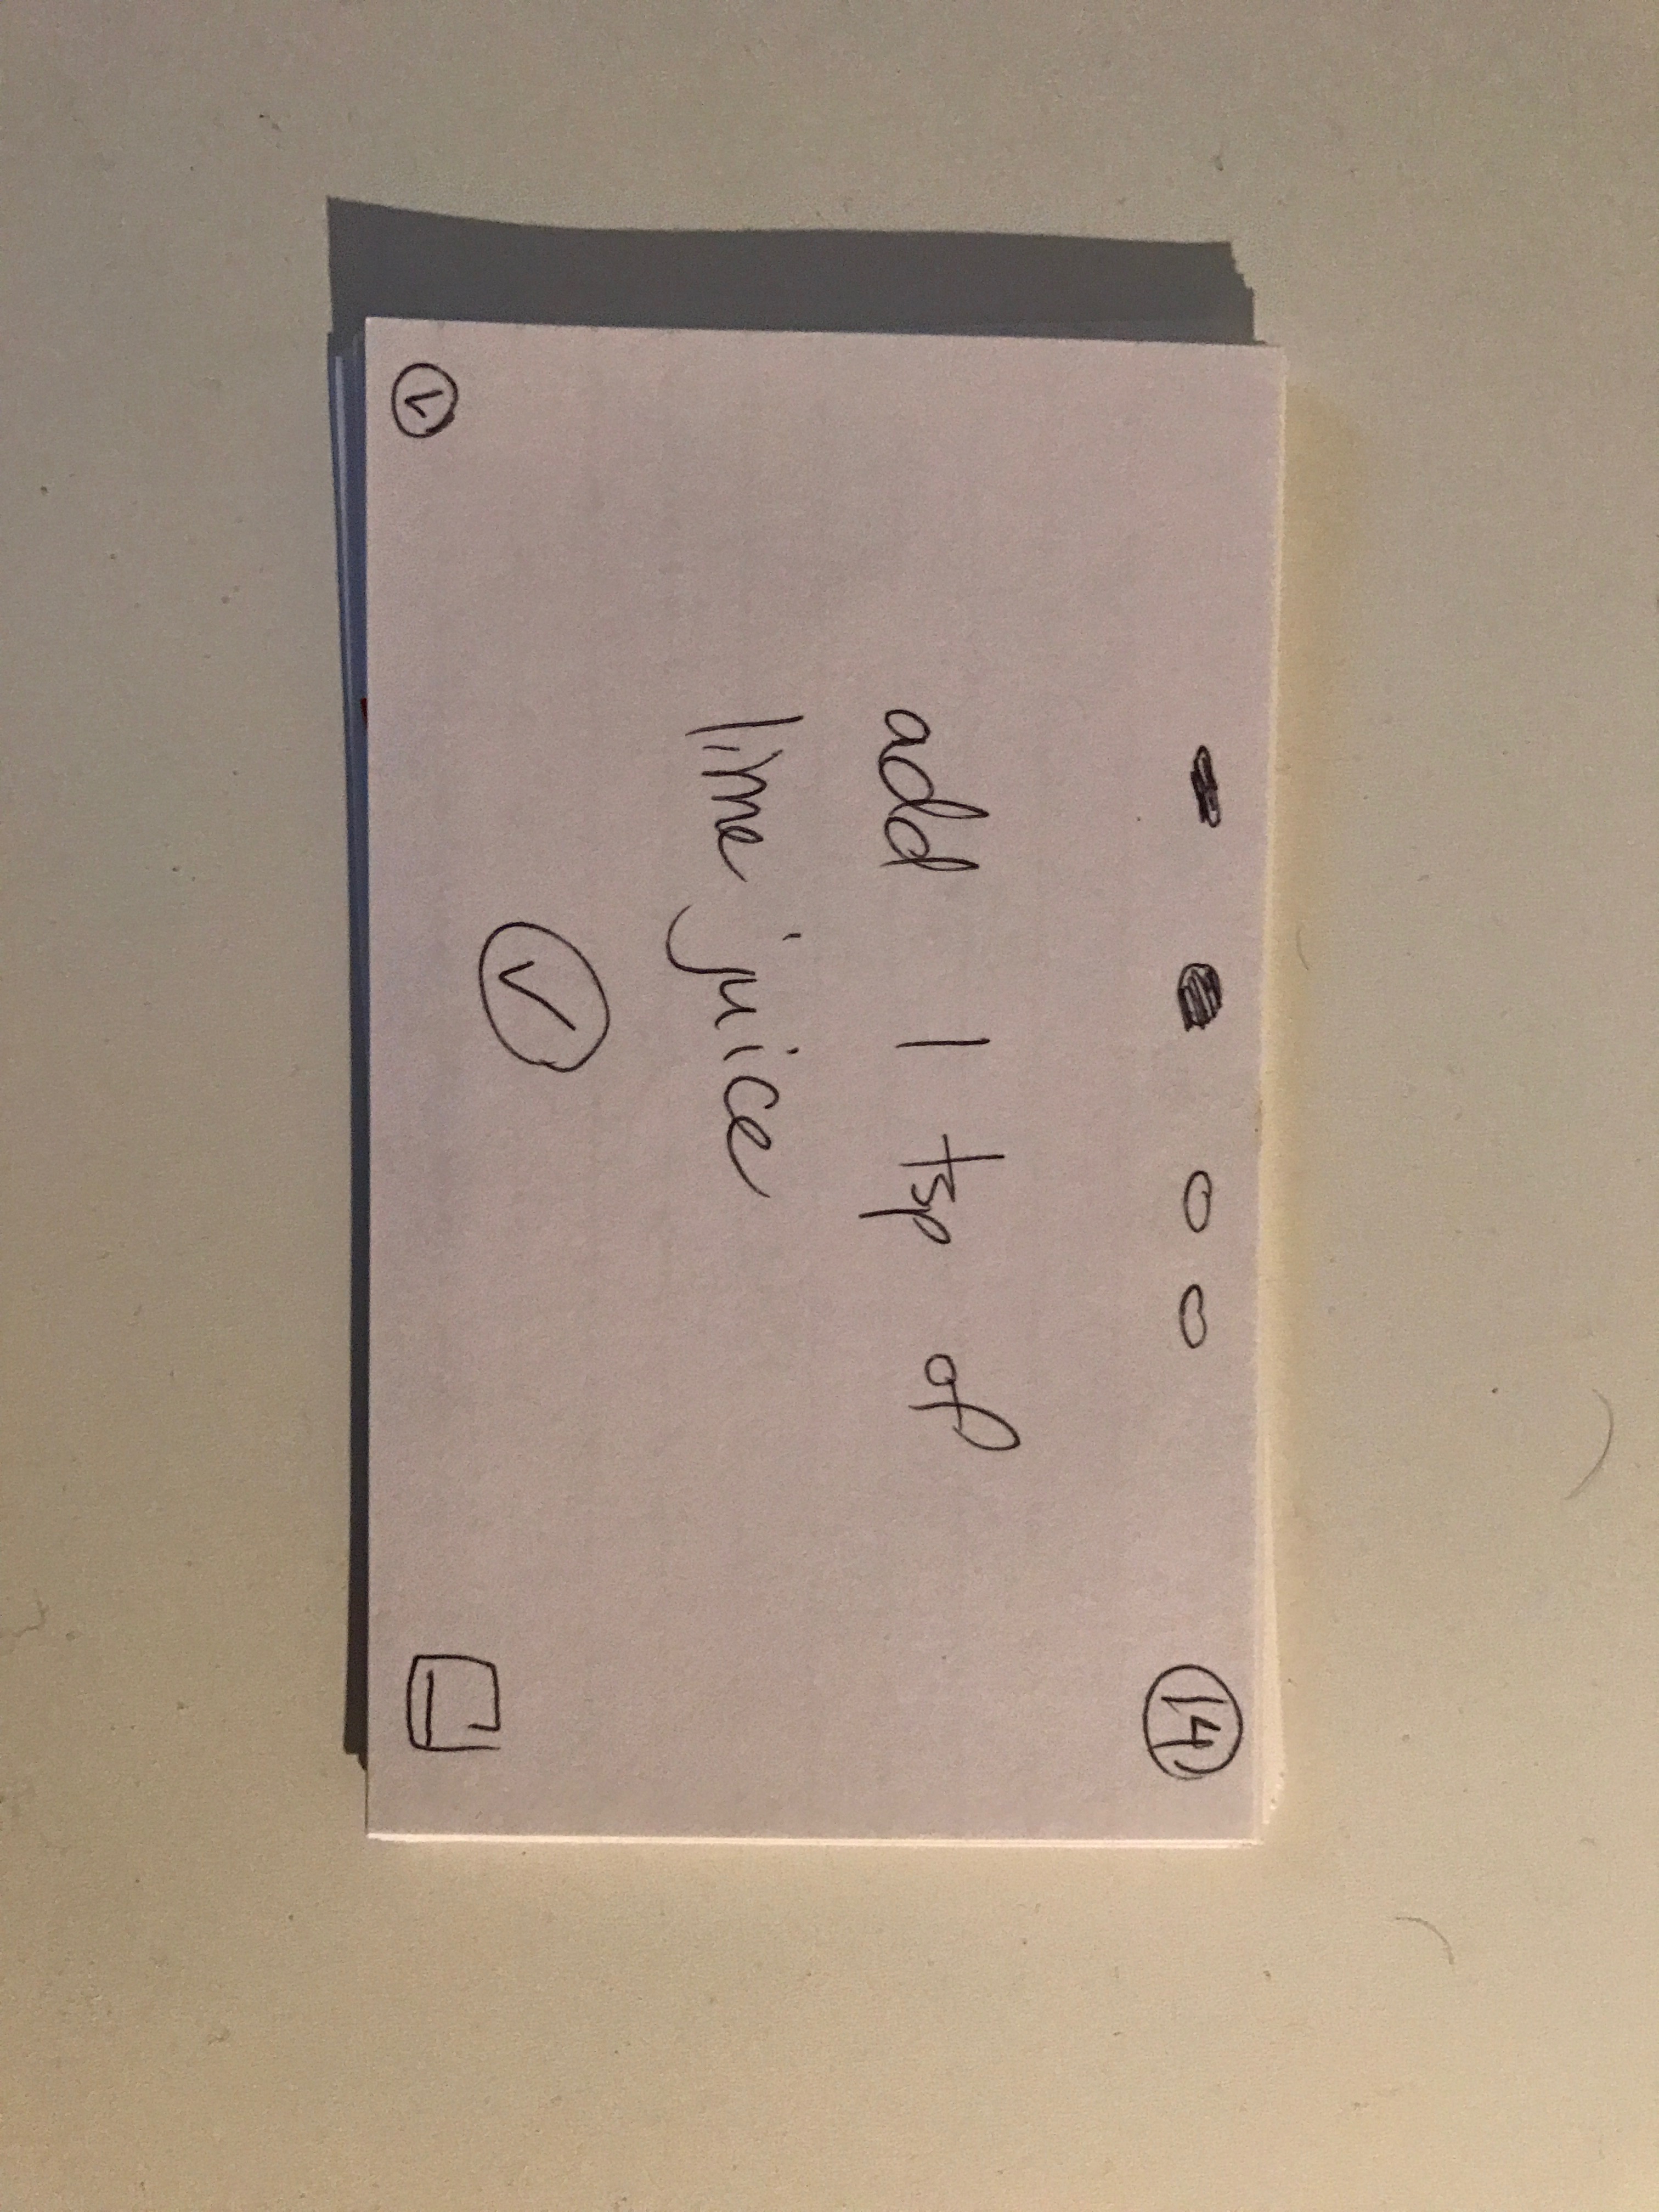 14
add 1 tsp of
lime juice